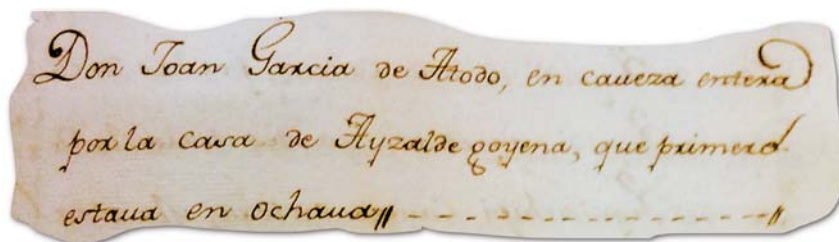 Don Joan Garcia de Atodo, en caveza entera
por la casa de Ayzalde goyena, que primero
estaua en ochaua